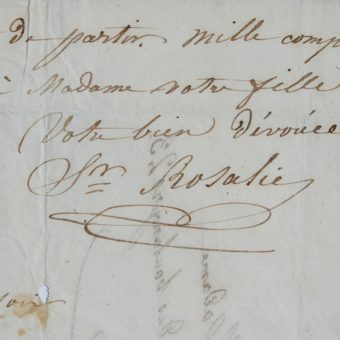 de partir. mille comp
à Madame votre fille
Votre bien dévouée
Sr Rosalie